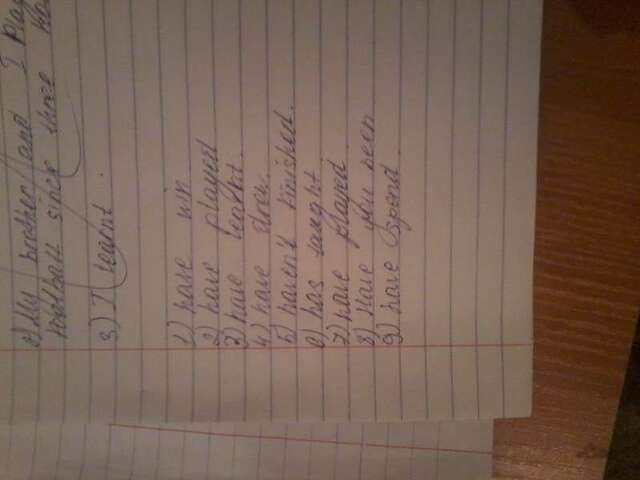 2) My brother and I play
football since three
3) I
1) have win
2) have played
3) have learnt.
4) have drew.
5) haven't finished.
6) has taught
7) have played
8) Have you seen
9) have spend.